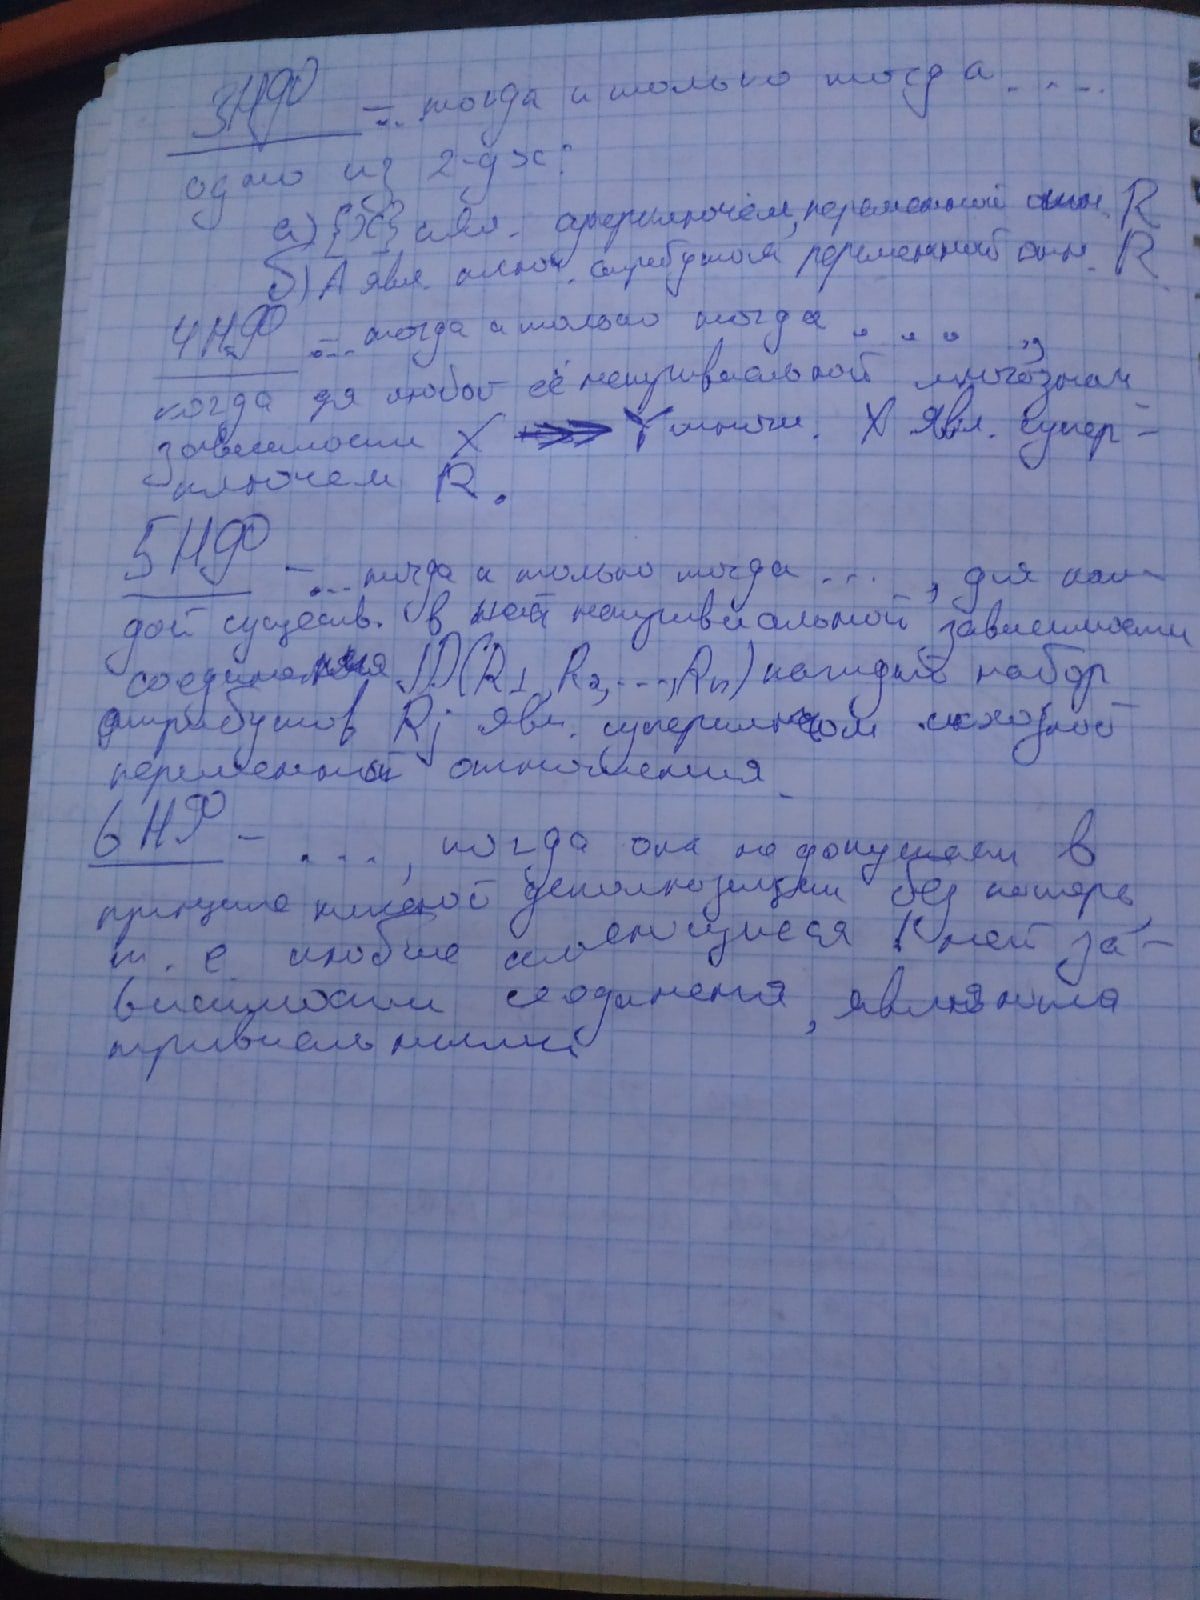 3НФ – ... тогда и только тогда ....
одно из 2-ух:
а) {X} явл. суперключём, переменной отн. R
б) A явл. ключ. атрибутом переменной отн. R
4НФ – ... тогда и только тогда ....
когда для любой её нетривиальной многознач
зависимости X ->> Y множ. X явл. супер-
ключем R.
5НФ – ... тогда и только тогда ...., для каж-
дой существ. в ней нетривиальной зависимости
соединения JD(R1, R2, ..., Rn) каждый набор
атрибутов Rj явл. суперключом исходной
переменной отношения.
6НФ – ...., когда она не допускает в
принципе никакой декомпозиции без потерь,
т. е. любые имеющиеся в ней за-
висимости соединения, являются
тривиальными